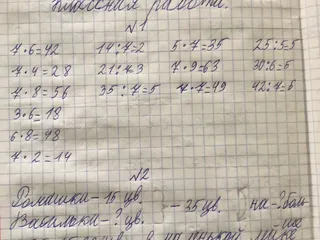 Классная работа.
№1
7·6=42 14:7=2 5·7=35 25:5=5
7·4=28 21:7=3 7·9=63 30:6=5
7·8=56 35:7=5 7·7=49 42:7=6
3·6=18
6·8=48
7·2=14
№2
Ромашки-15 цв. -35 цв. на-?боль-
Васильки-? цв. ше